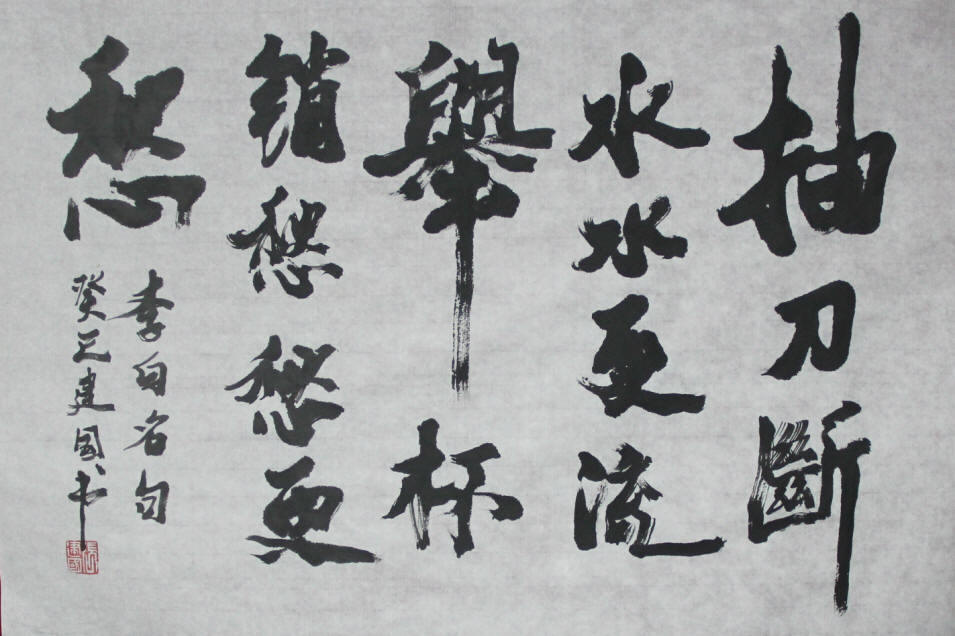 抽刀斷
水水更流
舉杯
銷愁愁更
愁
李白名句
癸巳建國书